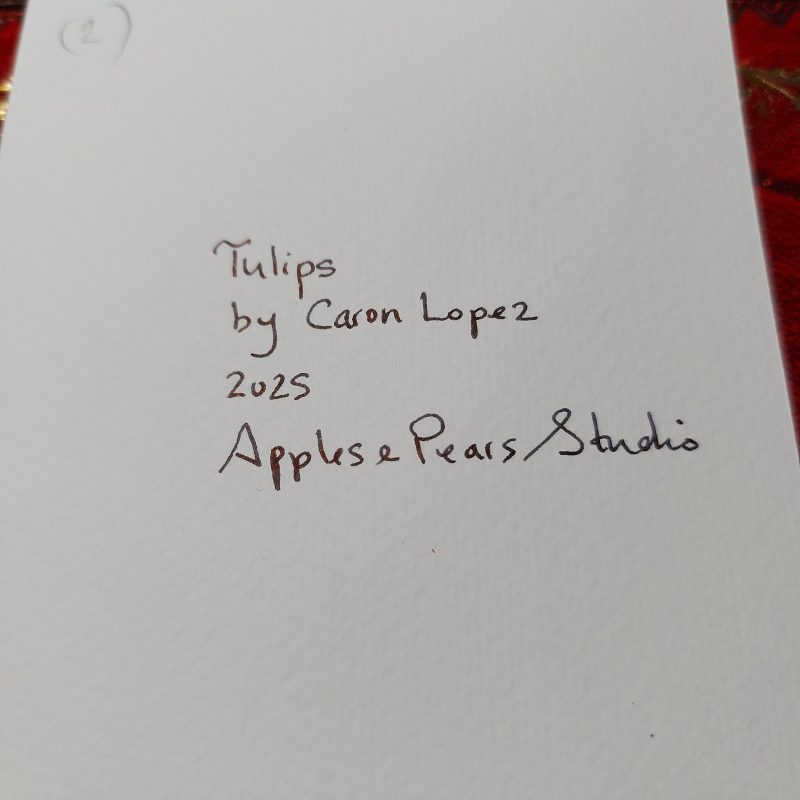 (2)
Tulips
by Caron Lopez
2025
Apples e Pears Studio